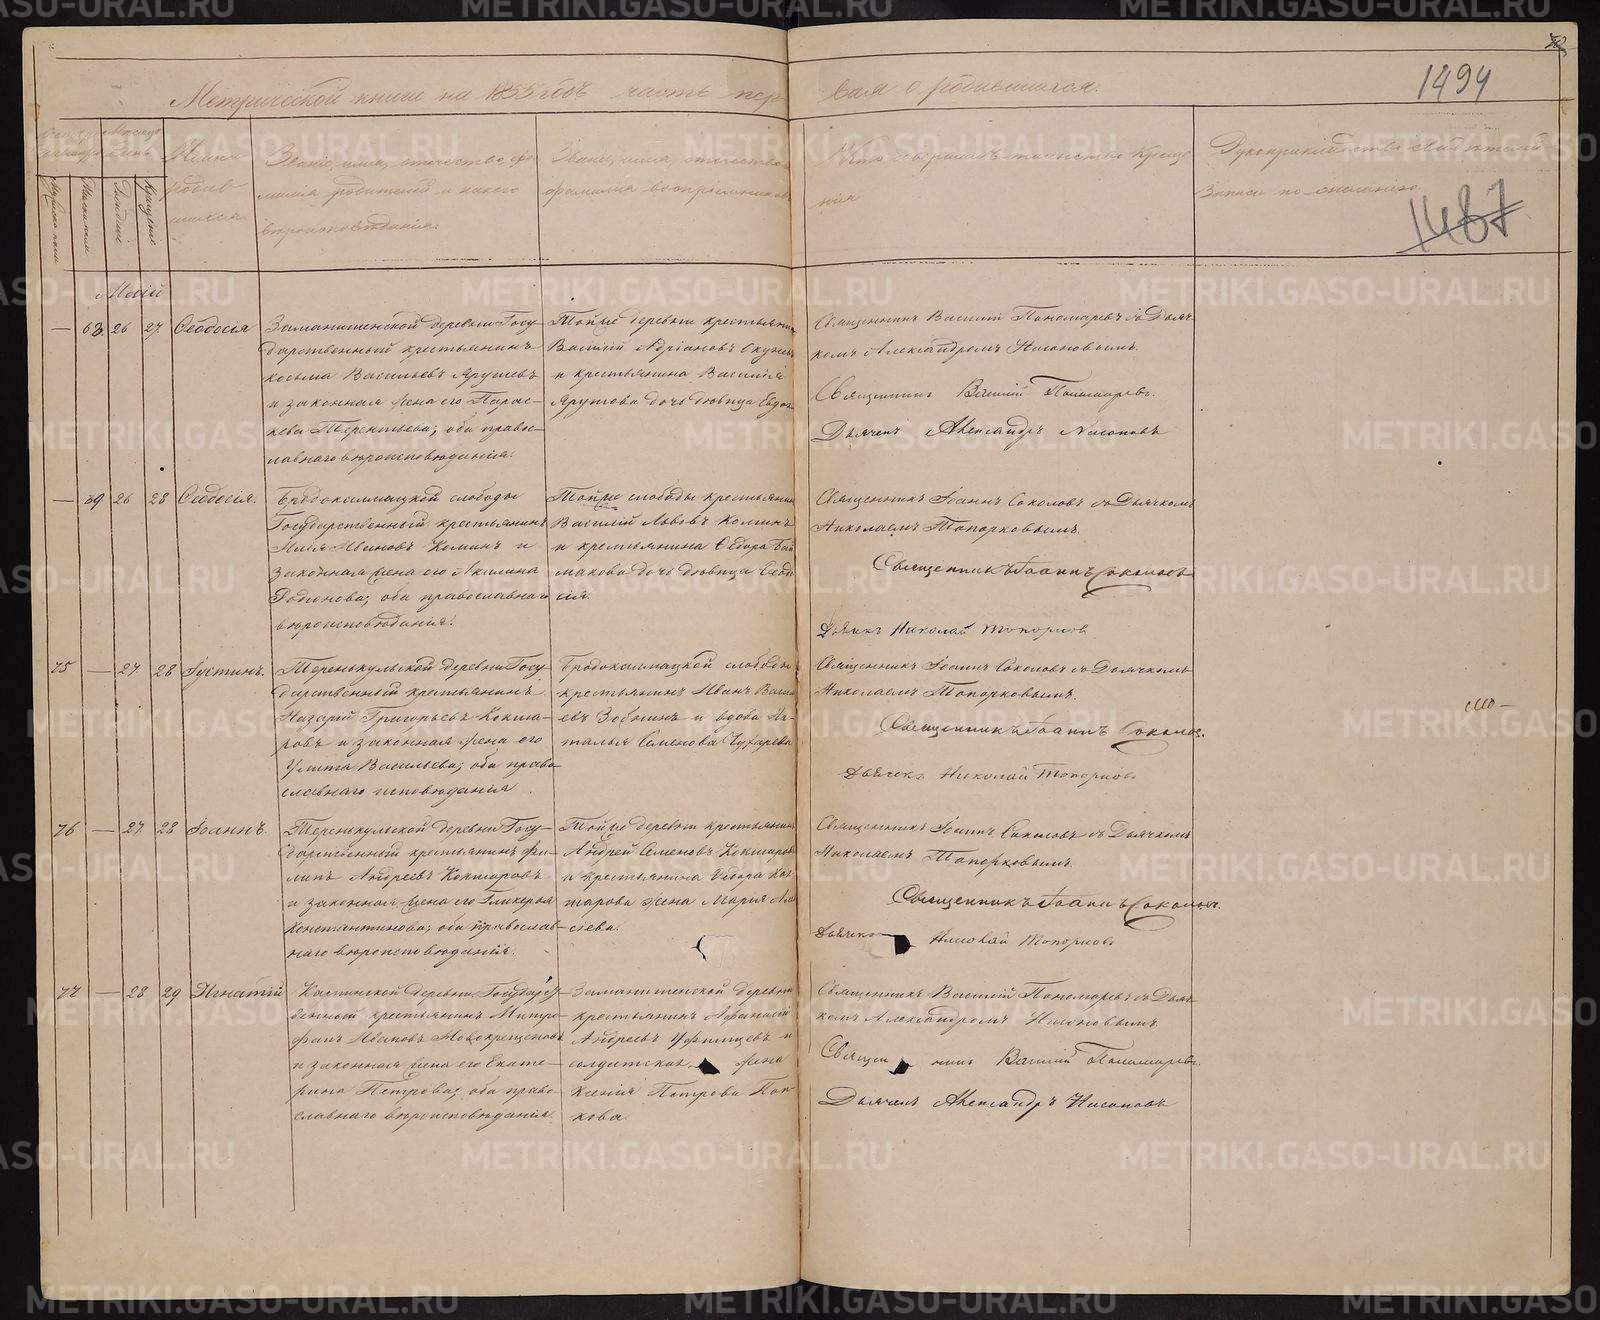 Метрической книги на 1855 годъ часть первая о родившихся.
1494
1487
Имена родившихся.
Званіе, имя, отчество, фамилія родителей и какого вѣроисповѣданія.
Званіе, имя, отчество, фамилія воспріемниковъ
Кто совершалъ таинство крещенія
Рукоприкладство свидѣтелей записи по желанію.
Маій
— 63. 26 27. Ѳеодосія
Заманиленской деревни Госу-
дарственный крестьянинъ
Косьма Васильевъ Ярушевъ
и законная жена его Парас-
кева Терентьева; оба право-
славнаго вѣроисповѣданія.
Тойже деревни крестьянинъ
Василій Адріановъ
и крестьянина Василія
дочь дѣвица
Священникъ Василій Пономаревъ съ Дьяч-
комъ Александромъ Насоновымъ.
Священникъ Василій Пономаревъ.
Дьячекъ Александръ Насоновъ
— 26 28 Ѳеодосія.
Бродокалмацкой слободы
Государственный крестьянинъ
Илья Ивановъ Коминъ и
законная жена его Акилина
Родіонова; оба православнаго
вѣроисповѣданія.
Тойже слободы крестьянинъ
Василій Львовъ Коминъ
и крестьянина Ѳедора
дочь дѣвица Ѳеодо-
сія.
Священникъ Іоаннъ Соколовъ съ Дьячкомъ
Николаемъ Топорковымъ.
Священникъ Іоаннъ Соколовъ
Дьячекъ Николай Топорковъ
75 — 27 28 Іустинъ.
Теренькульской деревни Госу-
дарственный крестьянинъ
Назарій Григорьевъ Кокша-
ровъ и законная жена его
Улита Васильева; оба право-
славнаго исповѣданія
Бродокалмацкой слободы
крестьянинъ Иванъ
и вдова На-
талья Семенова
Священникъ Іоаннъ Соколовъ съ Дьячкомъ
Николаемъ Топорковымъ.
Священникъ Іоаннъ Соколовъ.
Дьячекъ Николай Топорковъ
76 — 27 28 Іоаннъ.
Теренькульской деревни Госу-
дарственный крестьянинъ Фи-
липъ Андреевъ Кокшаровъ
и законная жена его Гликерья
Константинова; оба православ-
наго вѣроисповѣданія.
Тойже деревни крестьянинъ
Андрей Семеновъ Кокшаровъ
и крестьянина Ѳедора Кок-
шарова жена Марія Але-
сіева.
Священникъ Іоаннъ Соколовъ съ Дьячкомъ
Николаемъ Топорковымъ.
Священникъ Іоаннъ Соколовъ.
Дьячекъ Николай Топорковъ
77 — 28 29 Игнатій
деревни Государст-
венный крестьянинъ Митро-
фанъ Ивановъ Новокрещеновъ
и законная жена его Екате-
рина Петрова; оба право-
славнаго вѣроисповѣданія.
Заманиленской деревни
крестьянинъ Афанасій
Андреевъ и
солдатская жена
Ксенія Петрова Поп-
кова.
Священникъ Василій Пономаревъ съ Дьяч-
комъ Александромъ Насоновымъ.
Священникъ Василій Пономаревъ.
Дьячекъ Александръ Насоновъ
METRIKI.GASO-URAL.RU